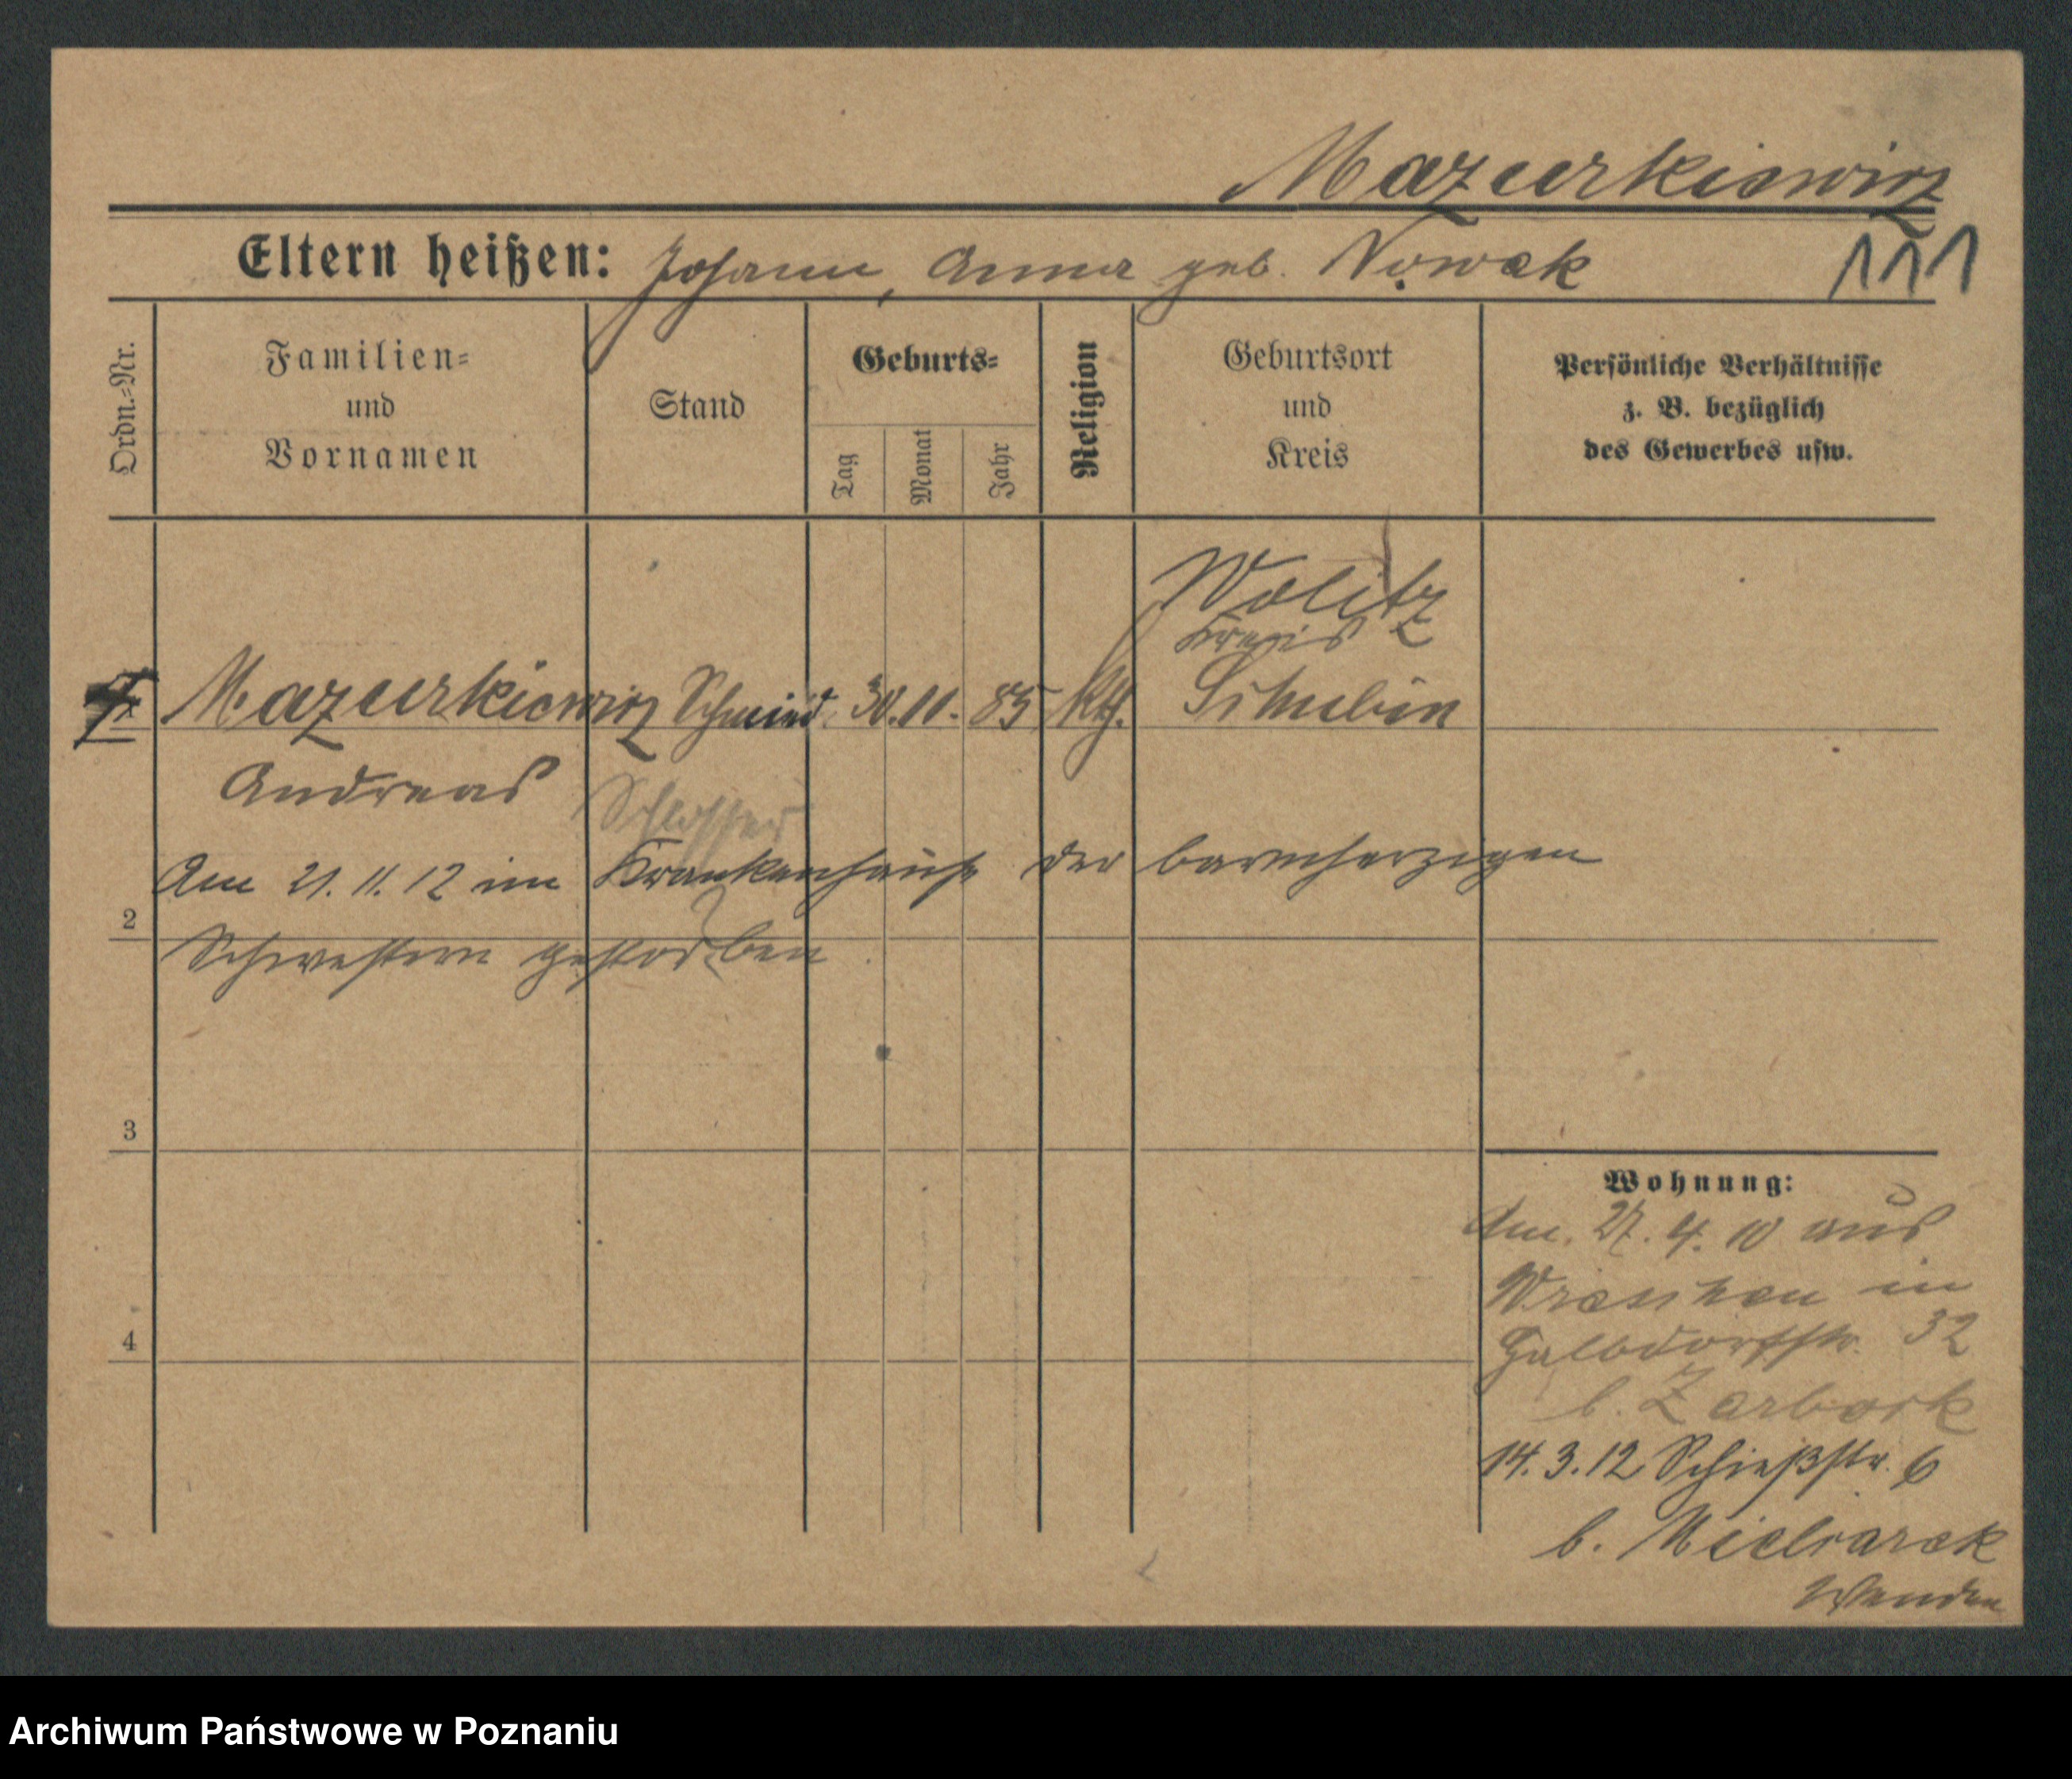 Mazurkiewicz
Eltern heißen: Johann, Anna geb. Nowak
111
Ordn.=Nr.
Familien=
und
Vornamen
Stand
Geburts=
Tag
Monat
Jahr
Religion
Geburtsort
und
Kreis
Persönliche Verhältnisse
z. B. bezüglich
des Gewerbes usw.
Wolitz
Kreis
Mazurkiewicz Schmied 30. 11. 85 kth. Schubin
Andreas
Schlosser
Am 21. 11. 12 im Krankenhause der barmherzigen
2
Schwestern gestorben
3
Wohnung:
Am. 27. 4. 10 aus
Wreschen in
4
Halbdorfstr. 32
b. Zarbock
14. 3. 12 Schießstr. 6
b. Mielcarek
Wenden
Archiwum Państwowe w Poznaniu